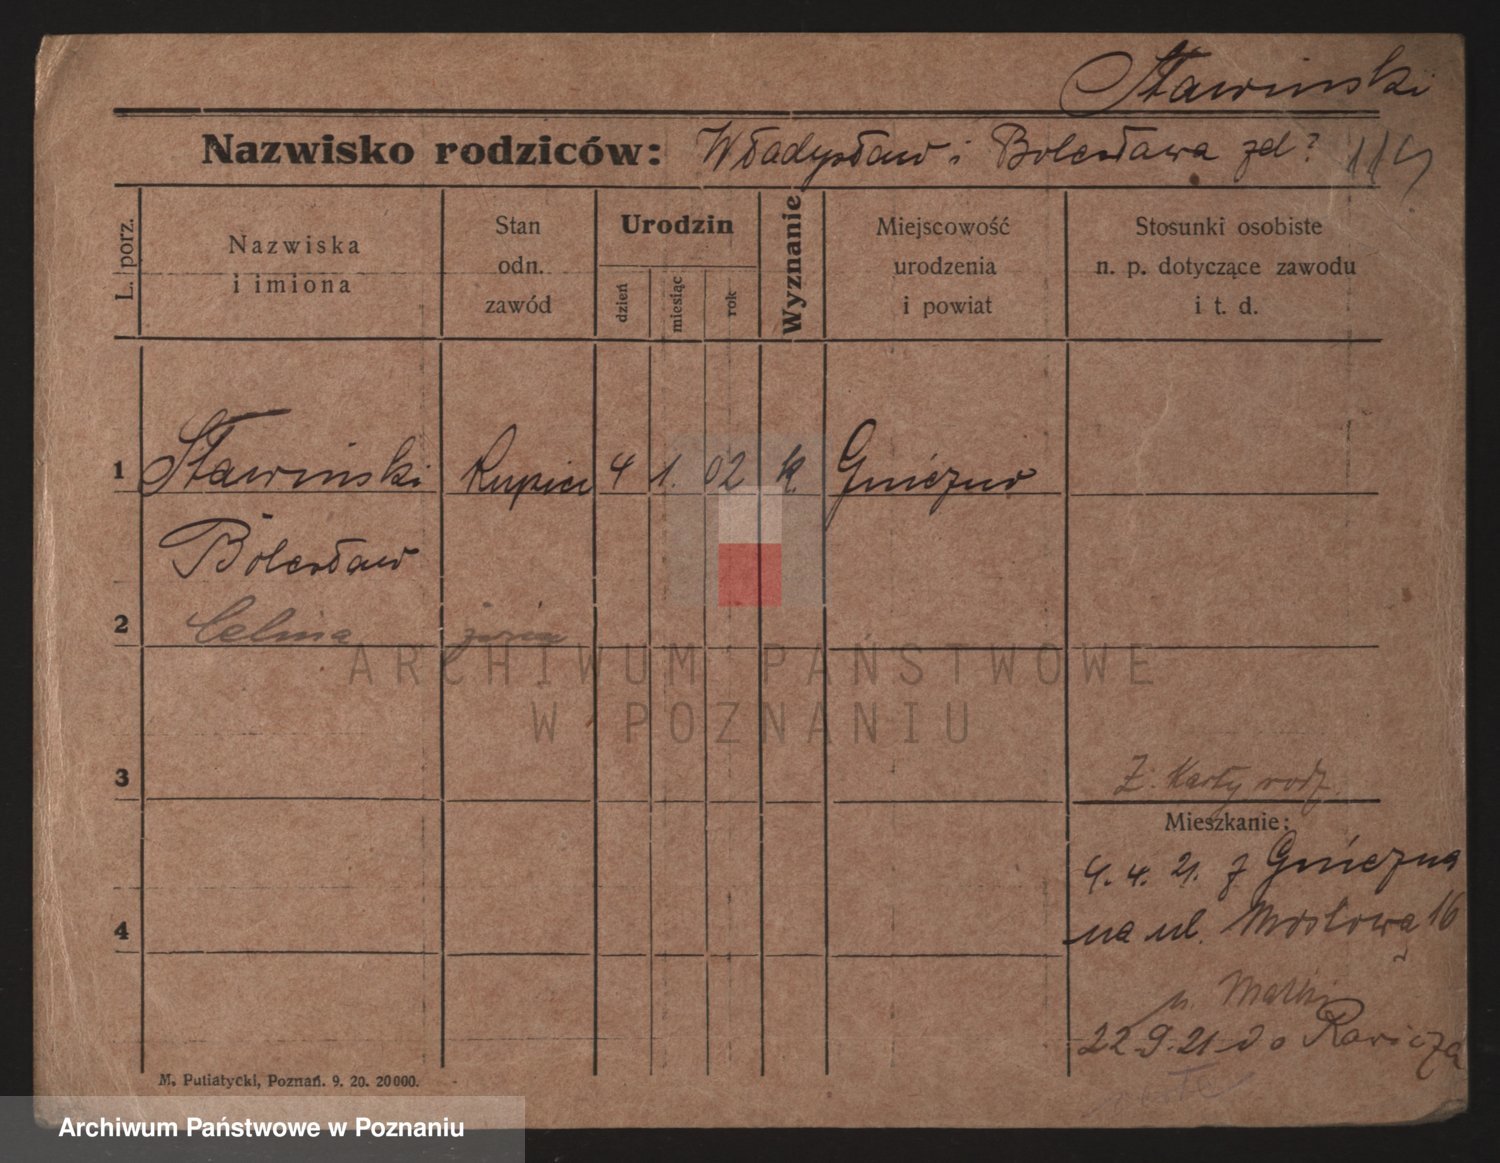 Sławinski
Nazwisko rodziców: Władysław i Bolesława zd?
L. porz.
Nazwiska
i imiona
Stan
odn.
zawód
Urodzin
dzień
miesiąc
rok
Wyznanie
Miejscowość
urodzenia
i powiat
Stosunki osobiste
n. p. dotyczące zawodu
i t. d.
1 Sławiński Kupiec 4 1. 02 k. Gniezno
Bolesław
2 Celina
ARCHIWUM PAŃSTWOWE
W POZNANIU
3
Z. Karty rodz.
Mieszkanie:
4. 4. 21. z Gniezna
na ul. Mostowa 16
4
u. Matki
22.9.21 do Rawicza
M. Putiatycki, Poznań. 9. 20. 20000.
Archiwum Państwowe w Poznaniu